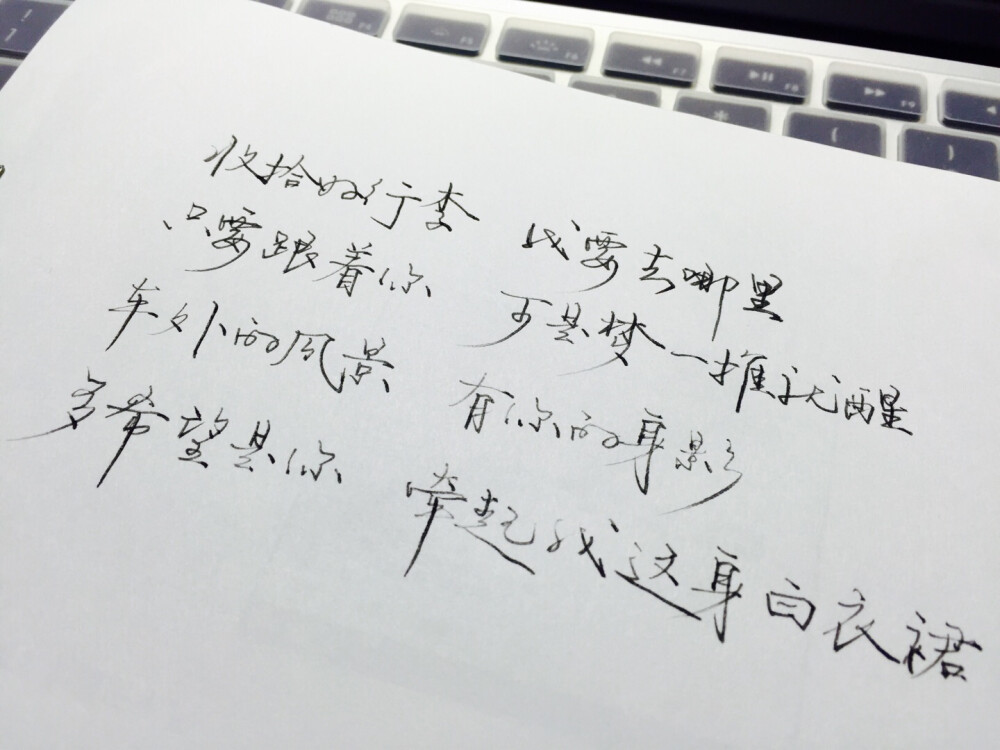 收拾好行李 我要去哪里
只要跟着你 可是梦一推就醒
车外的风景 有你的身影
多希望是你 牵起我这身白衣裙
! 1
F5
F6
F7
F8
F9
* ( )